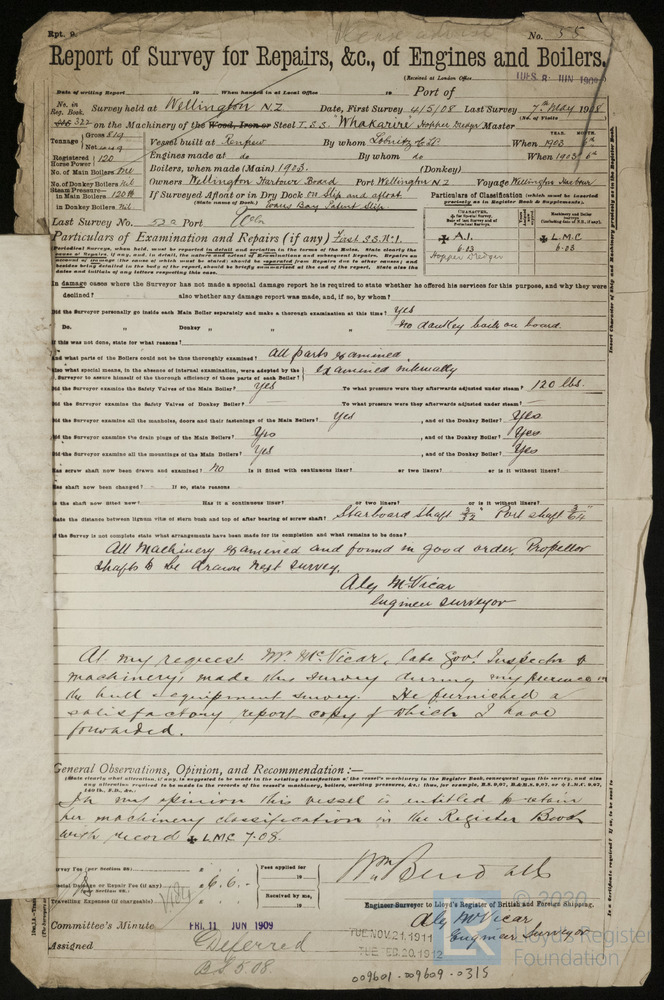 Rpt. 9.
No. 55
Report of Survey for Repairs, &c., of Engines and Boilers.
(Received at London Office
TUES. 8 JUN 1909
Date of writing Report 19 When handed in at Local Office 19 Port of
No. in Reg. Book. Survey held at Wellington N.Z. Date, First Survey 4/5/08 Last Survey 7th May 1908
(No. of Visits
322 on the Machinery of the Wood, Iron or Steel T.S.S. "Whakarire" Hopper Dredger Master
Tonnage Gross 819 Net
Vessel built at Renfrew By whom Lobnitz & Co Ld When 1903
YEAR. MONTH.
Registered Horse Power 120 Engines made at do By whom do When 1903
No. of Main Boilers One Boilers, when made (Main) 1903. (Donkey)
No. of Donkey Boilers Nil Owners Wellington Harbour Board Port Wellington N.Z Voyage Wellington Harbour
Steam Pressure— in Main Boilers 120 lb If Surveyed Afloat or in Dry Dock on slip and afloat
(State name of Dock.) Evans Bay Patent Slip.
in Donkey Boilers Nil
Particulars of Classification (which must be inserted precisely as in Register Book & Supplements).
A.1. 6.03 Hopper Dredger
L.M.C 6.03
Last Survey No. 52a Port
Particulars of Examination and Repairs (if any) First S.S. No. 1.
In damage cases where the Surveyor has not made a special damage report he is required to state whether he offered his services for this purpose, and why they were
declined? also whether any damage report was made, and, if so, by whom?
Did the Surveyor personally go inside each Main Boiler separately and make a thorough examination at this time? Yes
Do. " Donkey " " " " no donkey boiler on board.
If this was not done, state for what reasons?
And what parts of the Boilers could not be thus thoroughly examined? All parts examined.
Also what special means, in the absence of internal examination, were adopted by the Surveyor to assure himself of the thorough efficiency of those parts of each Boiler? Examined internally
Did the Surveyor examine the Safety Valves of the Main Boiler? Yes To what pressure were they afterwards adjusted under steam? 120 lbs.
Did the Surveyor examine the Safety Valves of Donkey Boiler? To what pressure were they afterwards adjusted under steam?
Did the Surveyor examine all the manholes, doors and their fastenings of the Main Boilers? Yes , and of the Donkey Boiler? Yes
Did the Surveyor examine the drain plugs of the Main Boilers? Yes , and of the Donkey Boiler? Yes
Did the Surveyor examine all the mountings of the Main Boilers? Yes , and of the Donkey Boiler? Yes
Has screw shaft now been drawn and examined? No Is it fitted with continuous liner? or two liners? or is it without liners?
Has shaft now been changed? If so, state reasons
Is the shaft now fitted new? Has it a continuous liner? or two liners? or is it without liners?
State the distance between lignum vitæ of stern bush and top of after bearing of screw shaft? Starboard Shaft 3/32" Port shaft 3/64"
If the Survey is not complete state what arrangements have been made for its completion and what remains to be done?
All Machinery examined and found in good order, Propellor
shafts to be drawn next survey.
Alex McVicar
Engineer Surveyor
At my request Mr. McVicar, late Govt. Inspector of
machinery, made this survey during my presence on
the hull & equipment survey. He furnished a
satisfactory report copy of which I have
forwarded.
General Observations, Opinion, and Recommendation:—
(State clearly what alteration, if any, is suggested to be made in the existing classification of the vessel's machinery in the Register Book, consequent upon this survey, and also
In my opinion this vessel is entitled to retain
her machinery classification in the Register Book
with record LMC 7.08.
Survey Fee (per Section 28)
Special Damage or Repair Fee (if any) (per Section 28.) £ 6.6.-
Travelling Expenses (if chargeable)
Fees applied for 19
Received by me, 19
Wm Bendall
Engineer Surveyor to Lloyd's Register of British and Foreign Shipping.
Alex McVicar
Engineer Surveyor
Committee's Minute FRI. 11 JUN 1909
TUE. NOV. 21. 1911
TUE. FEB. 20. 1912
Assigned Deferred
BS 5.08.
009601-009609-0315
© 2020
Lloyd's Register
Foundation